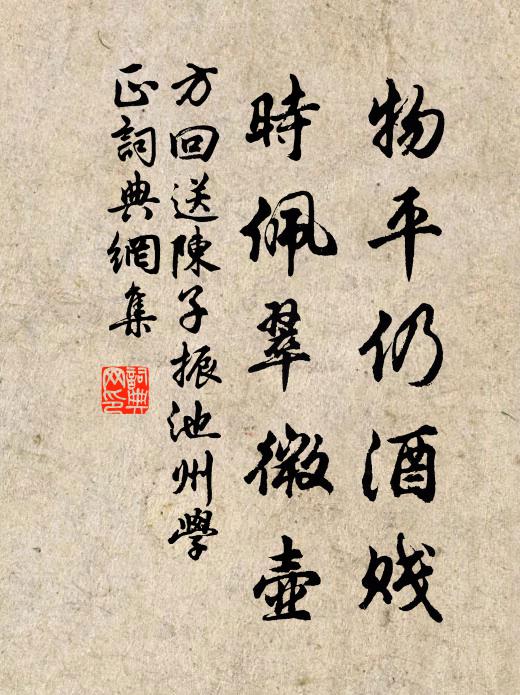 物平仍酒賤
時佩翠微壺
方回送陳子振池州學
正詞典網集
詞典網印